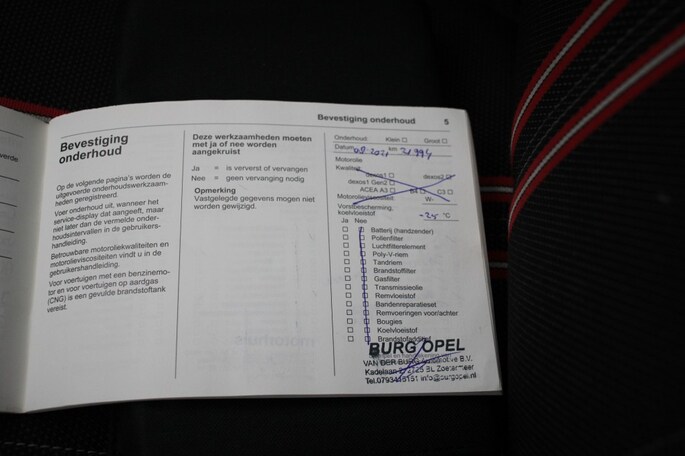 Bevestiging onderhoud 5
Bevestiging
onderhoud
Op de volgende pagina's worden de
uitgevoerde onderhoudswerkzaam-
heden geregistreerd.
Voer onderhoud uit, wanneer het
service-display dat aangeeft, maar
niet later dan de vermelde onder-
houdsintervallen in de gebruikers-
handleiding.
Betrouwbare motoroliekwaliteiten en
motorolieviscositeiten vindt u in de
gebruikershandleiding.
Voor voertuigen met een benzinemo-
tor en voor voertuigen op aardgas
(CNG) is een gevulde brandstoftank
vereist.
Deze werkzaamheden moeten
met ja of nee worden
aangekruist
Ja = is ververst of vervangen
Nee = geen vervanging nodig
Opmerking
Vastgelegde gegevens mogen niet
worden gewijzigd.
Onderhoud: Klein Groot
Datum km 31.994
Motorolie
Kwaliteit
dexos1 dexos2
dexos1 Gen2
ACEA A3 B4 C3
Motorolieviscositeit W-
Vorstbescherming,
koelvloeistof -25 °C
Ja Nee
Batterij (handzender)
Pollenfilter
Luchtfilterelement
Poly-V-riem
Tandriem
Brandstoffilter
Gasfilter
Transmissieolie
Remvloeistof
Bandenreparatieset
Remvoeringen voor/achter
Bougies
Koelvloeistof
Brandstofadditief
BURG OPEL
VAN DER BURG Automotive B.V.
Kadelaan 2725 BL Zoetermeer
info@burgopel.nl